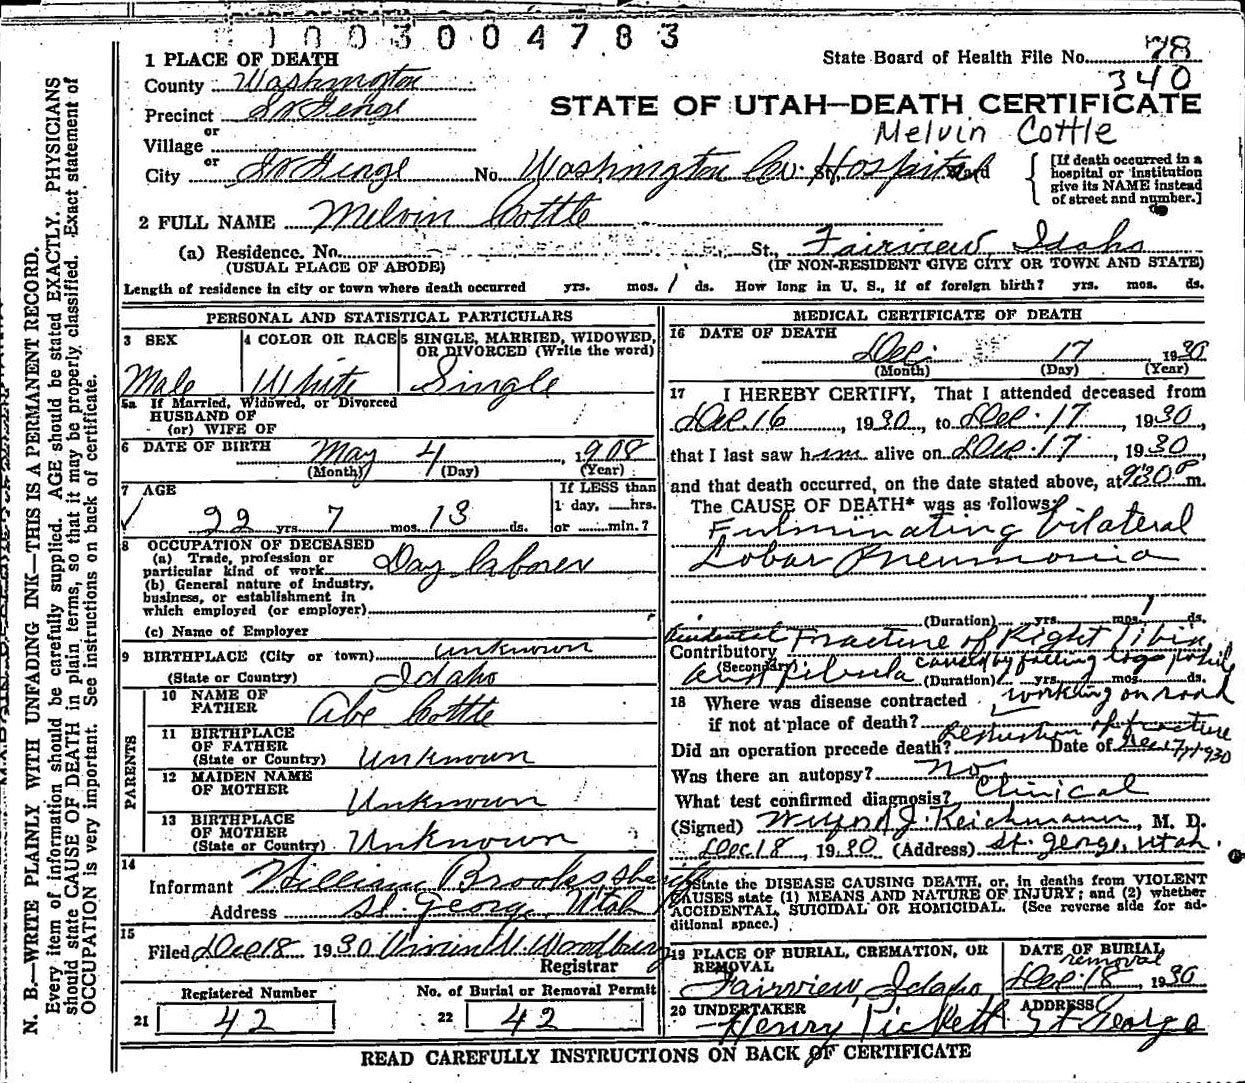 1003004783
1 PLACE OF DEATH
State Board of Health File No. 78
340
County Washington
STATE OF UTAH—DEATH CERTIFICATE
Precinct St George
Melvin Cottle
or
Village
or
City St George No. Washington Co. Hospital St., Ward
[If death occurred in a
hospital or institution
give its NAME instead
of street and number.]
2 FULL NAME Melvin Cottle
(a) Residence. No. St., Fairview, Idaho
(USUAL PLACE OF ABODE) (IF NON-RESIDENT GIVE CITY OR TOWN AND STATE)
Length of residence in city or town where death occurred yrs. mos. 1 ds. How long in U. S., if of foreign birth? yrs. mos. ds.
PERSONAL AND STATISTICAL PARTICULARS
3 SEX 4 COLOR OR RACE 5 SINGLE, MARRIED, WIDOWED,
OR DIVORCED (Write the word)
Male White Single
5a If Married, Widowed, or Divorced
HUSBAND OF
(or) WIFE OF
6 DATE OF BIRTH May 4, 1908
(Month) (Day) (Year)
7 AGE If LESS than
1 day, hrs.
22 yrs. 7 mos. 13 ds. or min.?
8 OCCUPATION OF DECEASED
(a) Trade, profession or
particular kind of work Day laborer
(b) General nature of industry,
business, or establishment in
which employed (or employer)
(c) Name of Employer
9 BIRTHPLACE (City or town) unknown
(State or Country) Idaho
PARENTS
10 NAME OF
FATHER Abe Cottle
11 BIRTHPLACE
OF FATHER
(State or Country) Unknown
12 MAIDEN NAME
OF MOTHER Unknown
13 BIRTHPLACE
OF MOTHER
(State or Country) Unknown
14
Informant William Brooks sheriff
Address St. George, Utah
15
Filed Dec 18 1930 W. Woodbury
Registrar
Registered Number No. of Burial or Removal Permit
21 42 22 42
MEDICAL CERTIFICATE OF DEATH
16 DATE OF DEATH
Dec. 17 1930
(Month) (Day) (Year)
17 I HEREBY CERTIFY, That I attended deceased from
Dec. 16, 1930, to Dec. 17, 1930,
that I last saw him alive on Dec. 17, 1930,
and that death occurred, on the date stated above, at 930 P m.
The CAUSE OF DEATH* was as follows:
Fulminating bilateral
Lobar Pneumonia
(Duration) yrs. mos. 1 ds.
Accidental Fracture of Right Tibia
Contributory
(Secondary)
and fibula caused by falling logs while
(Duration) yrs. mos. ds.
working on road
18 Where was disease contracted
if not at place of death?
Reduction of fracture
Did an operation precede death? Date of Dec 17, 1930
Was there an autopsy? no
What test confirmed diagnosis? Clinical
(Signed) Wilford J. Reichmann, M. D.
Dec 18, 1930 (Address) St. George, Utah.
*State the DISEASE CAUSING DEATH, or, in deaths from VIOLENT
CAUSES state (1) MEANS AND NATURE OF INJURY; and (2) whether
ACCIDENTAL, SUICIDAL OR HOMICIDAL. (See reverse side for ad-
ditional space.)
19 PLACE OF BURIAL, CREMATION, OR
REMOVAL
Fairview, Idaho
DATE OF BURIAL
removal
Dec. 18, 1930
20 UNDERTAKER ADDRESS
Henry Pickett St George
READ CAREFULLY INSTRUCTIONS ON BACK OF CERTIFICATE
N. B.—WRITE PLAINLY WITH UNFADING INK—THIS IS A PERMANENT RECORD.
Every item of information should be carefully supplied. AGE should be stated EXACTLY. PHYSICIANS
should state CAUSE OF DEATH in plain terms, so that it may be properly classified. Exact statement of
OCCUPATION is very important. See instructions on back of certificate.